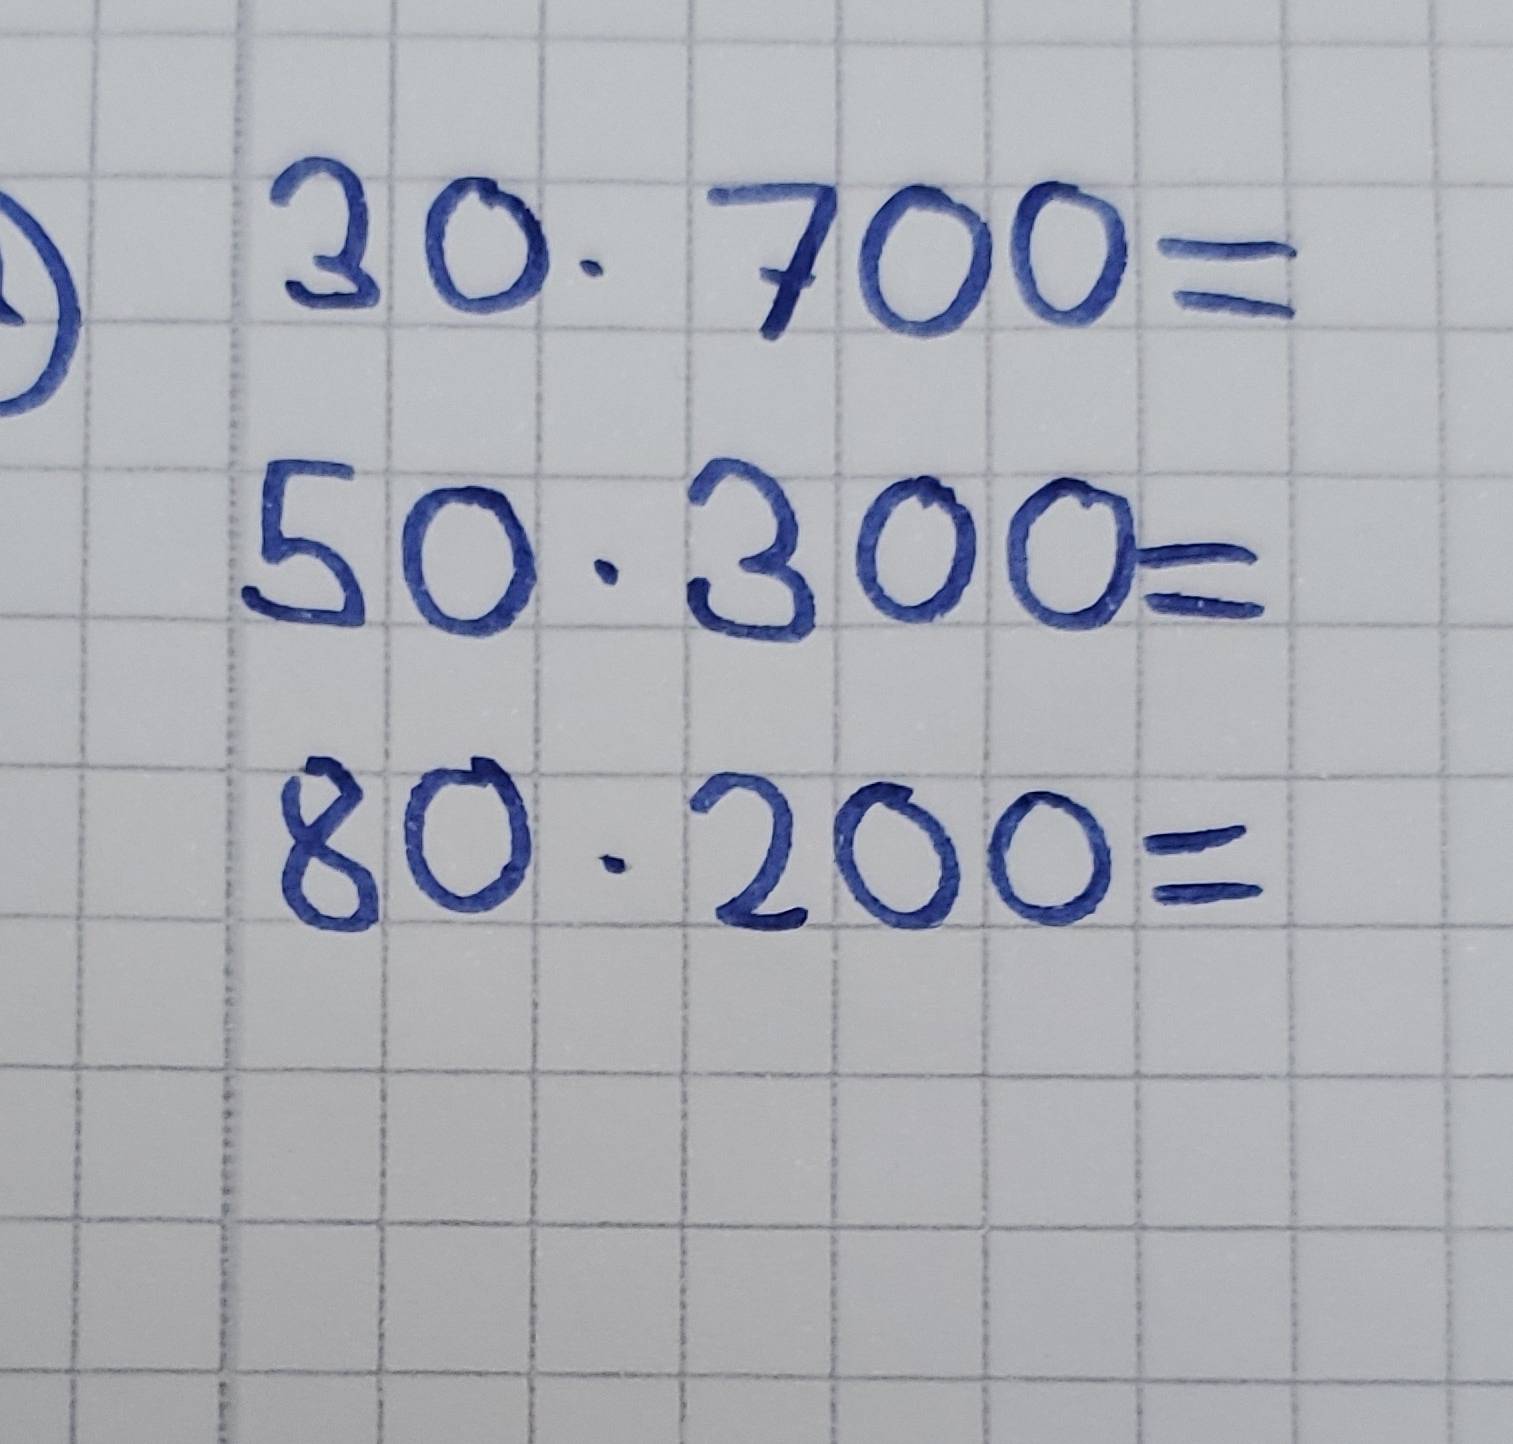 30 · 700 =
50 · 300 =
80 · 200 =